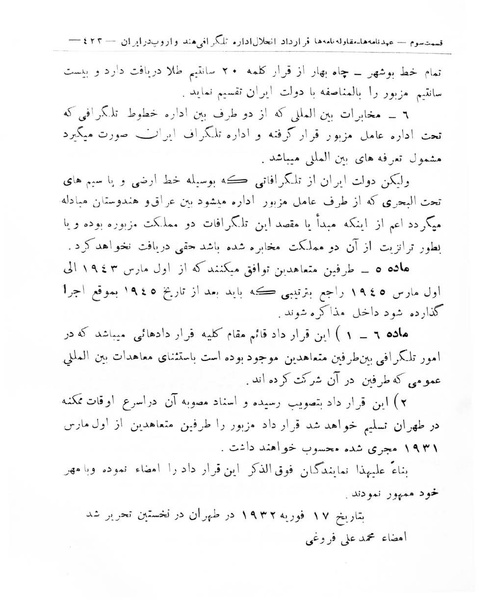 قسمت سوم — عهدنامه‌ها، مقاوله‌نامه‌ها قرارداد انحلال اداره تلگرافی هند و اروپ در ایران — ۴۲۳ —
تمام خط بوشهر — چاه بهار از قرار کلمه ۲۰ سانتیم طلا دریافت دارد و بیست
سانتیم مزبور را بالمناصفه با دولت ایران تقسیم نماید .
۶ — مخابرات بین المللی که از دو طرف بین اداره خطوط تلگرافی که
تحت اداره عامل مزبور قرار گرفته و اداره تلگراف ایران صورت میگیرد
مشمول تعرفه های بین المللی میباشد .
ولیکن دولت ایران از تلگرافاتی که بوسیله خط ارضی و یا سیم های
تحت البحری که از طرف عامل مزبور اداره میشود بین عراق و هندوستان مبادله
میگردد اعم از اینکه مبدأ یا مقصد این تلگرافات دو مملکت مزبوره بوده و یا
بطور ترانزیت از آن دو مملکت مخابره شده باشد حقی دریافت نخواهد کرد .
ماده ۵ — طرفین متعاهدین توافق میکنند که از اول مارس ۱۹۴۳ الی
اول مارس ۱۹۴۵ راجع بترتیبی که باید بعد از تاریخ ۱۹۴۵ بموقع اجرا
گذارده شود داخل مذاکره شوند .
ماده ۶ — ۱ ) این قرار داد قائم مقام کلیه قرار دادهائی میباشد که در
امور تلگرافی بین طرفین متعاهدین موجود بوده است باستثنای معاهدات بین المللی
عمومی که طرفین در آن شرکت کرده اند .
۲ ) این قرار داد بتصویب رسیده و اسناد مصوبه آن در اسرع اوقات ممکنه
در طهران تسلیم خواهد شد قرار داد مزبور را طرفین متعاهدین از اول مارس
۱۹۳۱ مجری شده محسوب خواهند داشت .
بناءً علیهذا نمایندگان فوق الذکر این قرار داد را امضاء نموده و بامهر
خود ممهور نمودند .
بتاریخ ۱۷ فوریه ۱۹۳۲ در طهران در نسختین تحریر شد
امضاء محمد علی فروغی